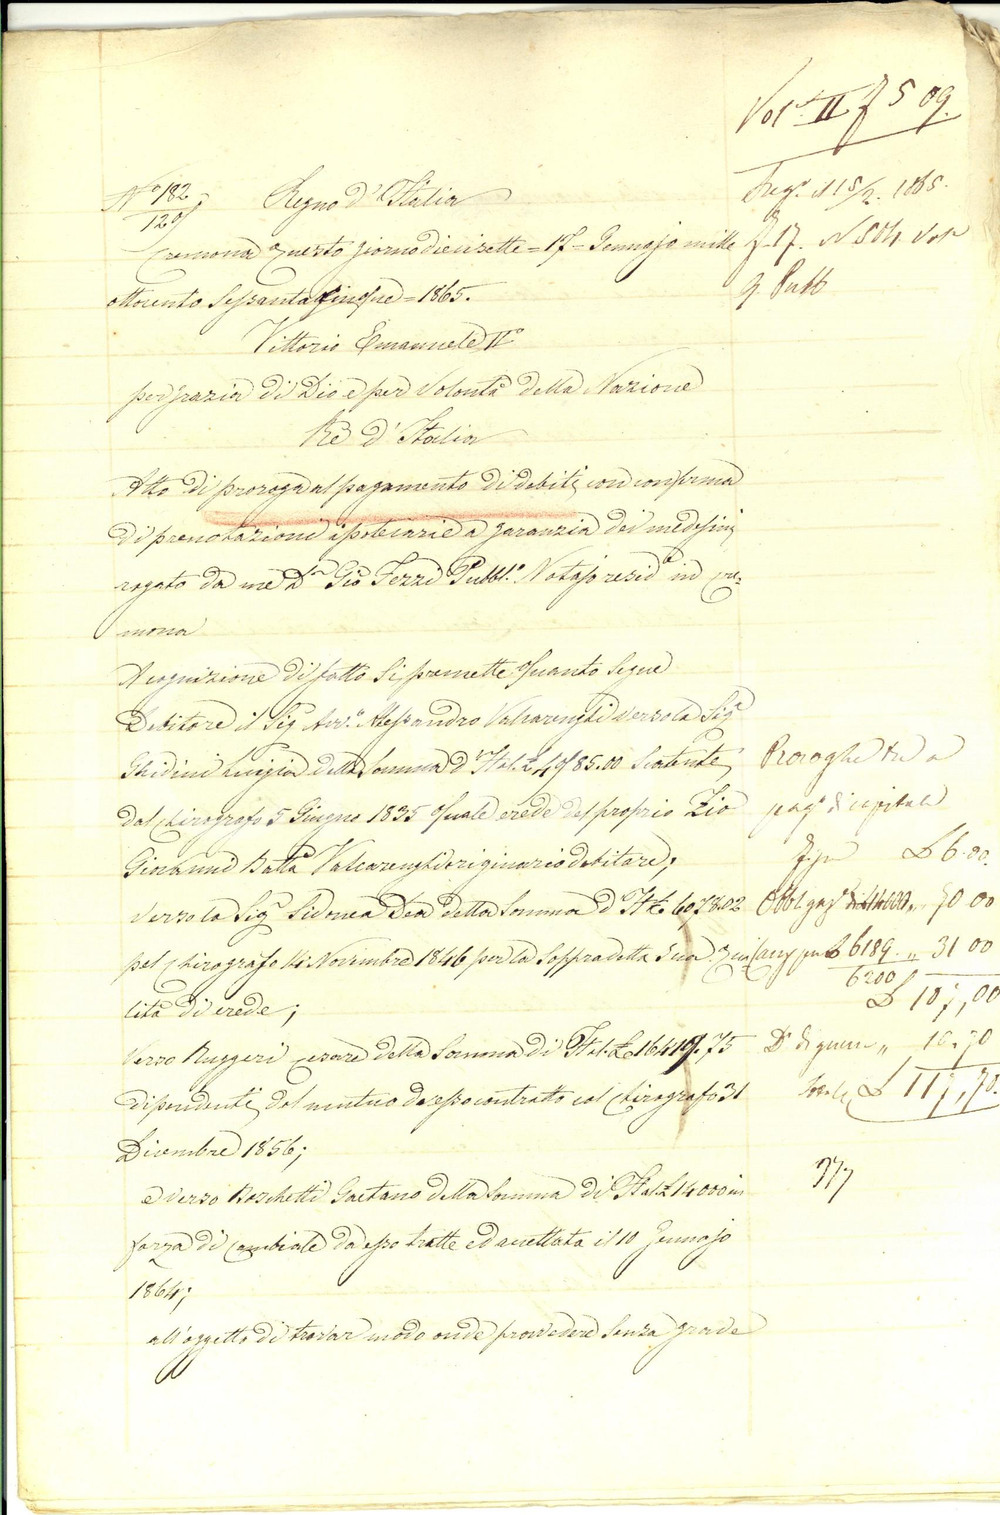 Vol. II. f 509.
N.° 182
129
Regno d'Italia
Cremona questo giorno diecisette = 17 = Gennajo mille
ottocento sessanta cinque = 1865.
Vittorio Emanuele II°
per grazia di Dio e per Volontà della Nazione
Re d'Italia
Atto di proroga al pagamento di debiti, con conferma
di prenotazioni ipotecarie a garanzia dei medesimi
rogato da me D.r Gio Fezzi Pubb.° Notajo resid.e in Cre=
mona
A cognizione di fatto si premette quanto segue
Debitore il Sig. Avv.° Alessandro Valcarenghi verso la Sig.a
Ghidini Luigia della Somma d'Ital. L 4985.00 Scatente
dal chirografo 5 Giugno 1835 quale erede del proprio Zio
Giovanni Batta Valcarenghi originario debitore;
Verso la Sig.a Sidonia Dea della Somma d'It L 6078.02
pel chirografo 14 Novembre 1846 per la soppradetta sua qua
lità di erede;
Verso Ruggeri Cesare della Somma di Ital. L 16419.75
dipendenti dal mutuo da esso contratto col chirografo 31
Dicembre 1856;
e verso Boschetti Gaetano della Somma di Ital. L 14000 in
forza di Cambiale da esso tratta ed accettata il 10 Gennajo
1864;
all'oggetto di trovar modo onde provvedere senza grave
Reg.° il 15/2. 1865.
f 17. N 504 Vol
9. Pubb
Proroghe tre a
pag.° di capitale
L 6.00.
Obbligaz.i 14000 „ 70 00
6189 „ 31 00
6200
L 107,00
D.° di guerra „ 10.70
totale L 117,70.